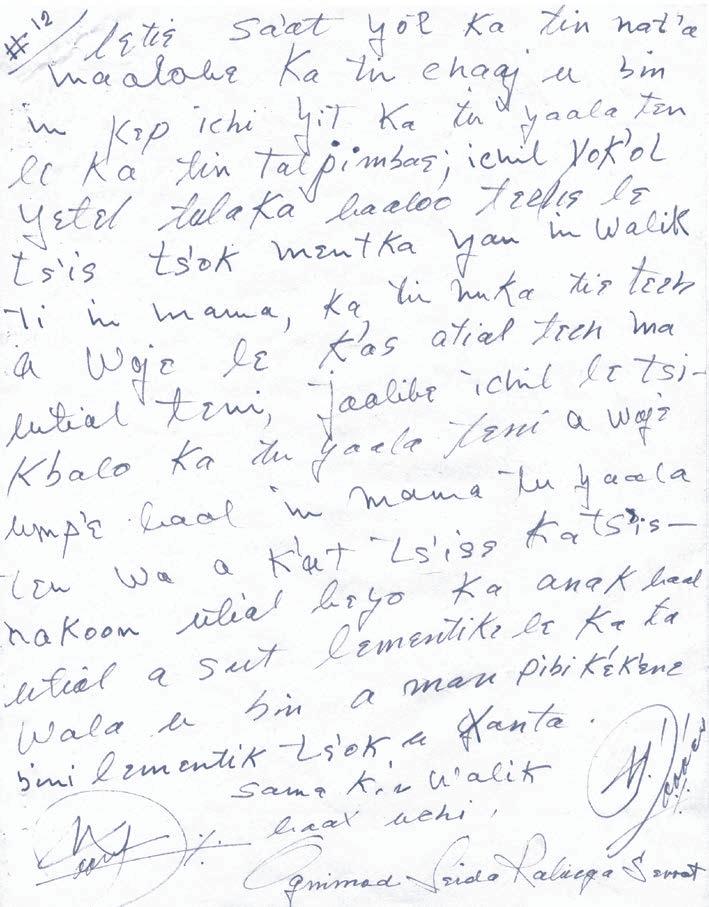 #12 letiɛ sa'at yól ka tin nat'a
maalobe ka tu chaaj u bin
in kɛp ichi yit ka tu yaala ten
le ka tin talpimbaɛ; ichil yok'ol
yetel tulaka baaloó teche le
ts'is ts'ok mentka yan in walik
ti in mama, ka tu nuka tiɛ teen
a wojɛ le k'as atial teen ma
utial teni, jaalibe ichil le tsi-
kbalo ka tu yaala teni a wojɛ
ump'ɛ baal in mama tu yaala
ten wa a k'at ts'isɛ kats'is-
nakoon utial beyo ka anak baal
utial a sut lementike le ka ta
wala u bin a man pibi kɛk'ɛnɛ
bini lementik ts'ok u xanta.
sama k.in w'alik
baax uchi.